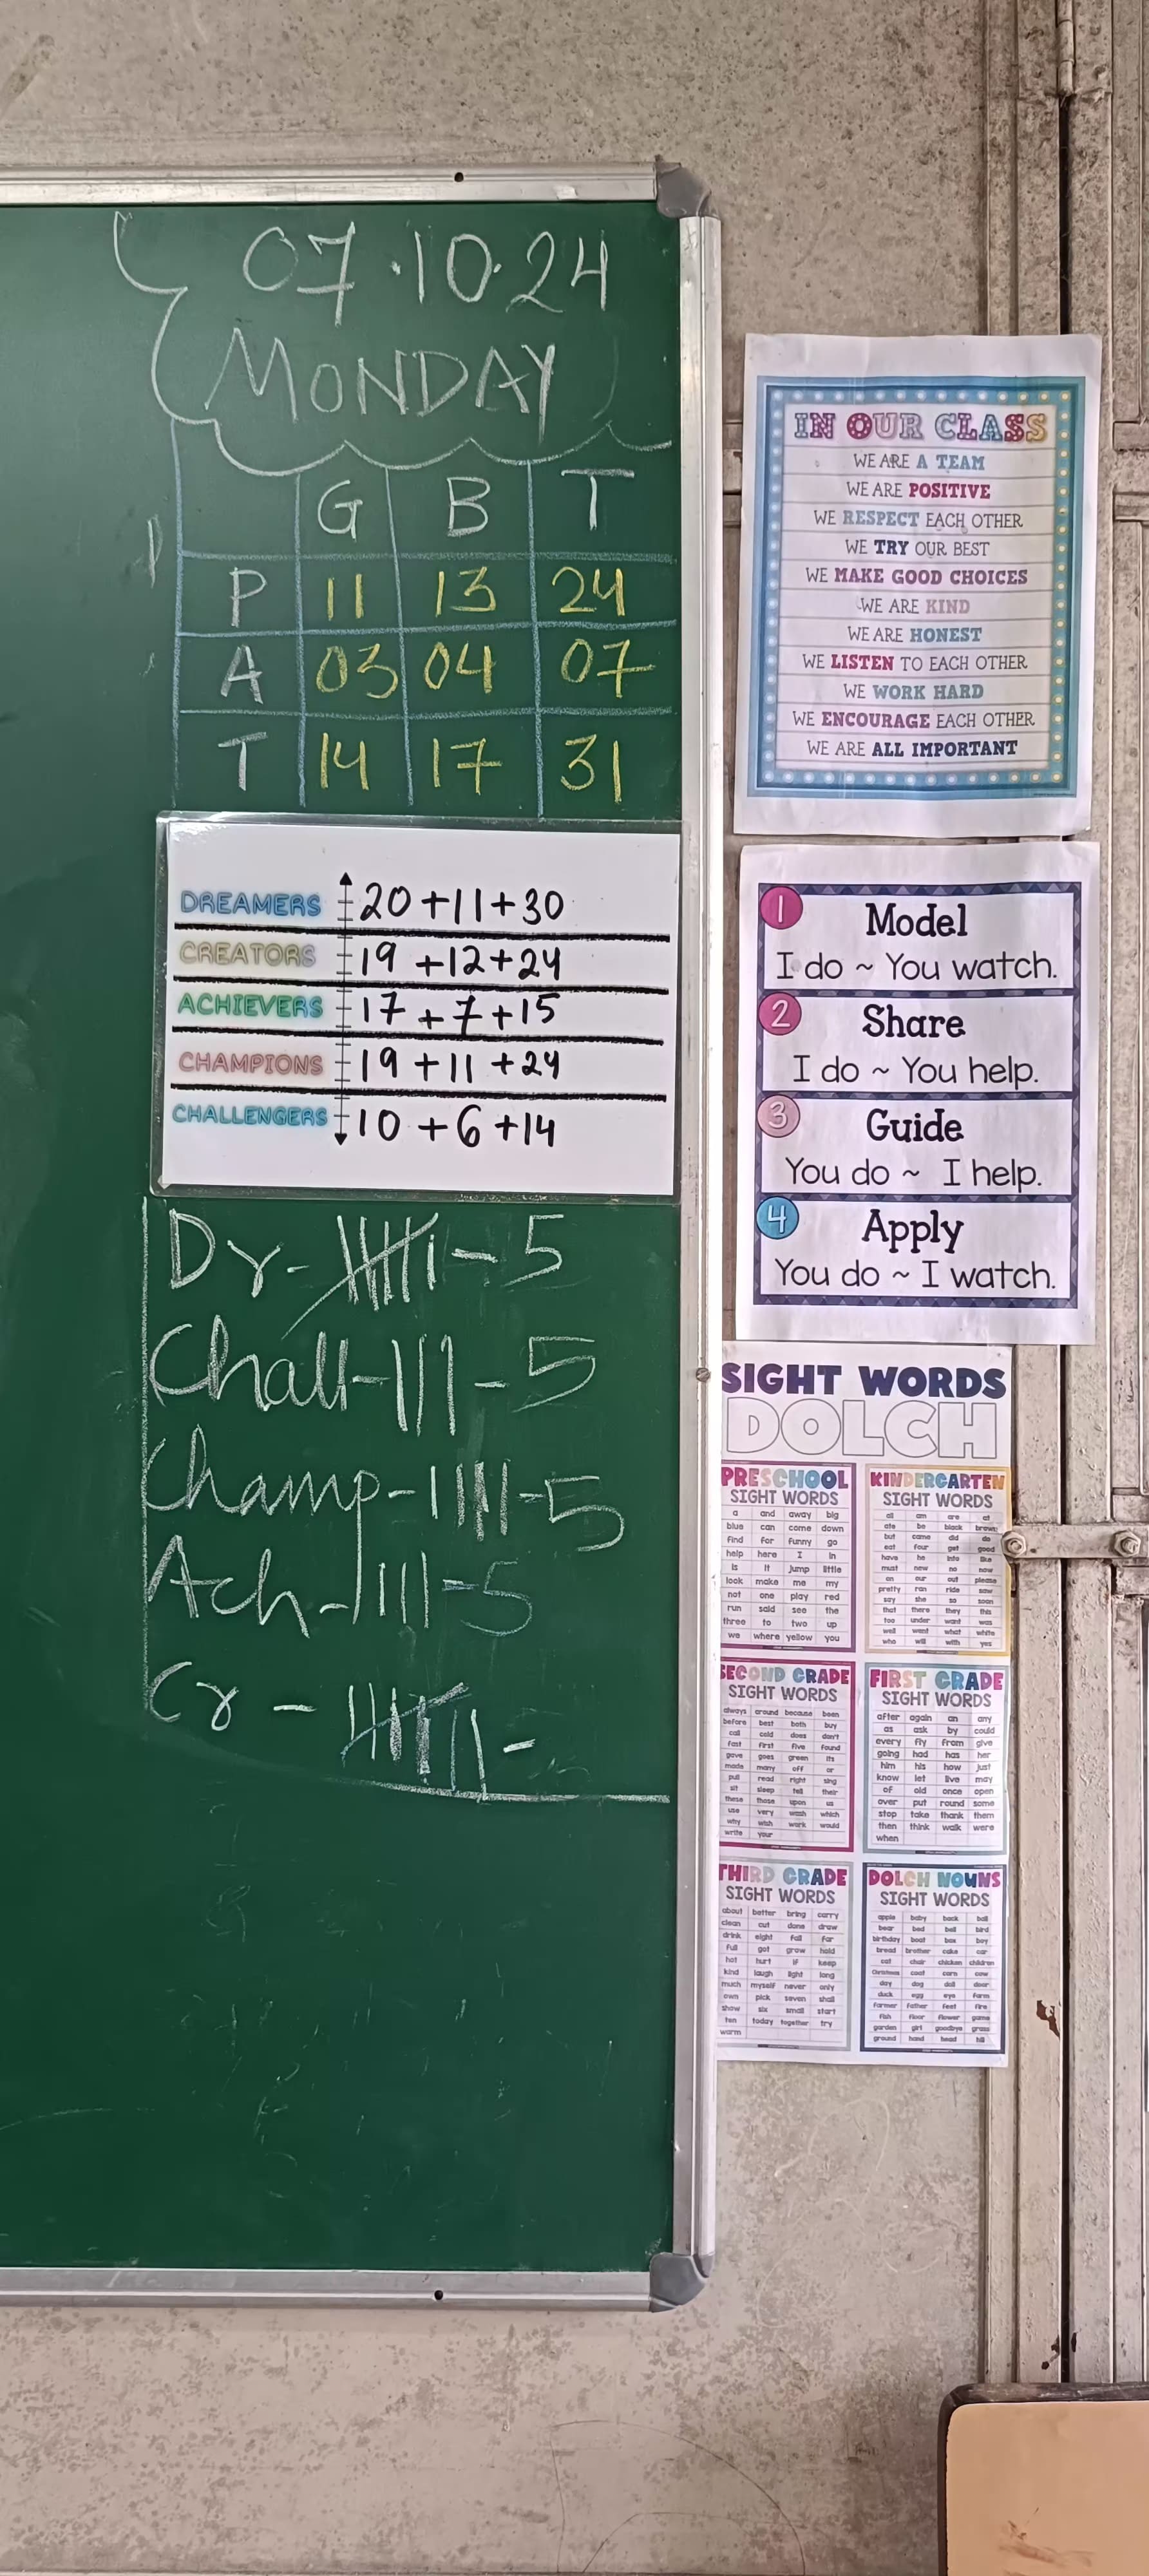 07.10.24
MONDAY
G B T
P 11 13 24
A 03 04 07
T 14 17 31
DREAMERS 20+11+30
CREATORS 19+12+24
ACHIEVERS 17+7+15
CHAMPIONS 19+11+24
CHALLENGERS 10+6+14
Dr - 5
Chall - 5
Champ - 5
Ach - 5
Cr -
IN OUR CLASS
WE ARE A TEAM
WE ARE POSITIVE
WE RESPECT EACH OTHER
WE TRY OUR BEST
WE MAKE GOOD CHOICES
WE ARE KIND
WE ARE HONEST
WE LISTEN TO EACH OTHER
WE WORK HARD
WE ENCOURAGE EACH OTHER
WE ARE ALL IMPORTANT
1 Model
I do ~ You watch.
2 Share
I do ~ You help.
3 Guide
You do ~ I help.
4 Apply
You do ~ I watch.
SIGHT WORDS
DOLCH
PRESCHOOL
SIGHT WORDS
a and away big
blue can come down
find for funny go
help here I in
is it jump little
look make me my
not one play red
run said see the
three to two up
we where yellow you
KINDERGARTEN
SIGHT WORDS
all am are at
ate be black brown
but came did do
eat four get good
have he into like
must new no now
on our out please
pretty ran ride saw
say she so soon
that there they this
too under want was
well went what white
who will with yes
SECOND GRADE
SIGHT WORDS
always around because been
before best both buy
call cold does don't
fast first five found
gave goes green its
made many off or
pull read right sing
sit sleep tell their
these those upon us
use very wash which
why wish work would
write your
FIRST GRADE
SIGHT WORDS
after again an any
as ask by could
every fly from give
going had has her
him his how just
know let live may
of old once open
over put round some
stop take thank them
then think walk were
when
THIRD GRADE
SIGHT WORDS
about better bring carry
clean cut done draw
drink eight fall far
full got grow hold
hot hurt if keep
kind laugh light long
much myself never only
own pick seven shall
show six small start
ten today together try
warm
DOLCH NOUNS
SIGHT WORDS
apple baby back ball
bear bed bell bird
birthday boat box boy
bread brother cake car
cat chair chicken children
Christmas coat corn cow
day dog doll door
duck egg eye farm
farmer father feet fire
fish floor flower game
garden girl goodbye grass
ground hand head hill